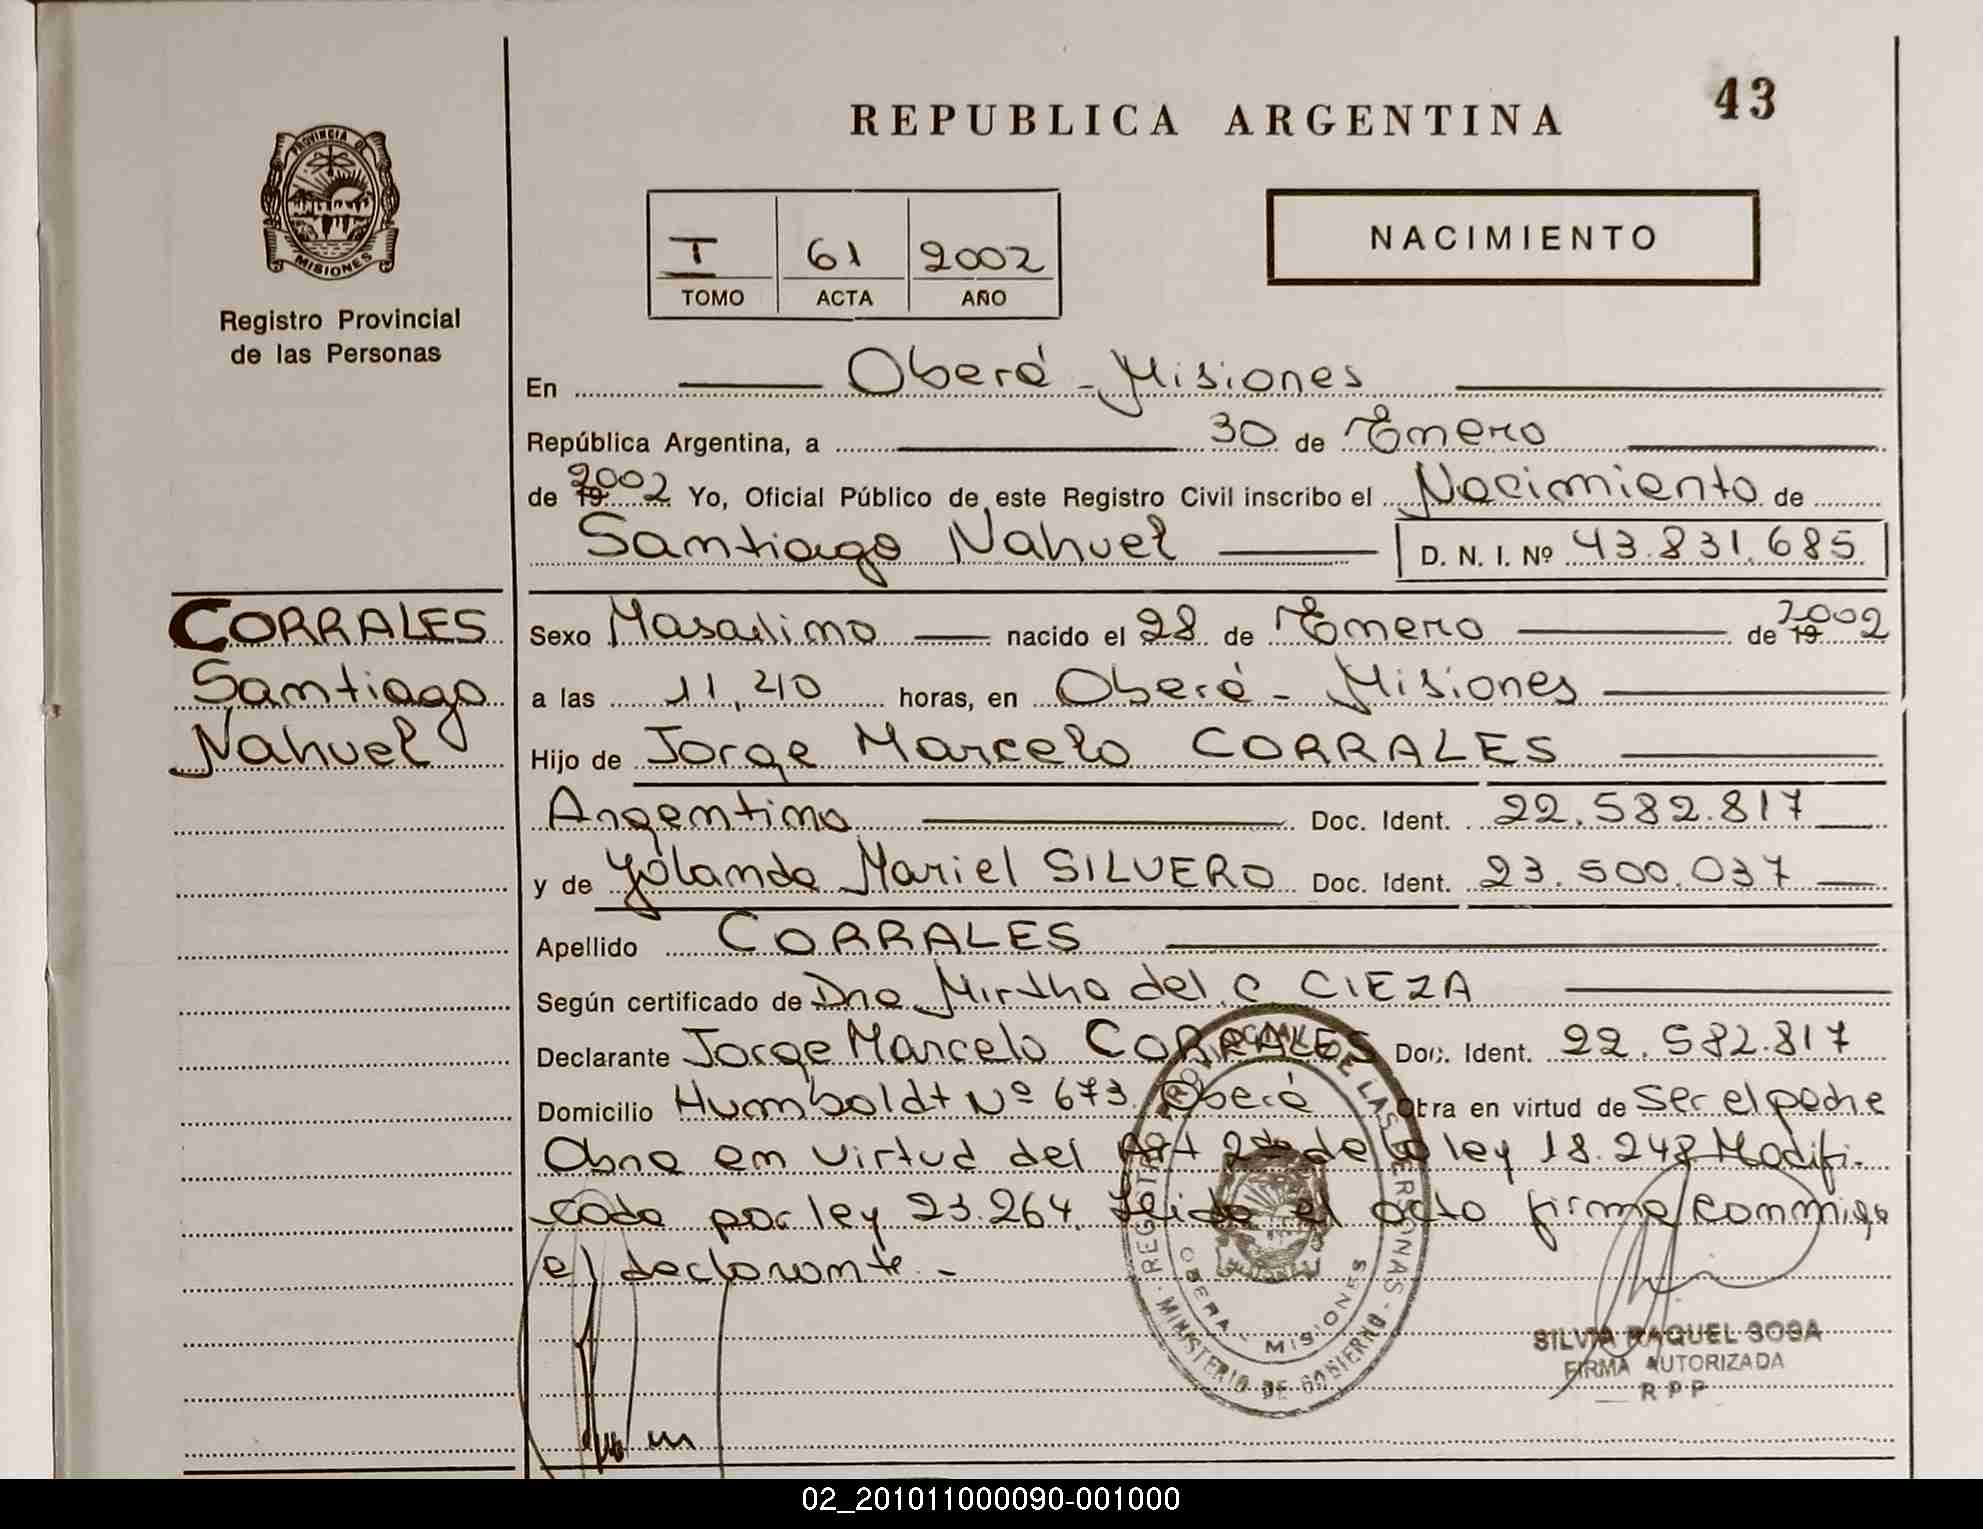 43
REPUBLICA ARGENTINA
PROVINCIA DE
MISIONES
Registro Provincial
de las Personas
NACIMIENTO
I 61 2002
TOMO ACTA AÑO
En Oberá - Misiones
República Argentina, a 30 de Enero
de 19 2002 Yo, Oficial Público de este Registro Civil inscribo el Nacimiento de
Santiago Nahuel D. N. I. Nº 43.831.685
CORRALES
Santiago
Nahuel
Sexo Masculino nacido el 28 de Enero de 19 2002
a las 11,40 horas, en Oberá - Misiones
Hijo de Jorge Marcelo CORRALES
Argentino Doc. Ident. 22.582.817
y de Yolanda Mariel SILVERO Doc. Ident. 23.500.037
Apellido CORRALES
Según certificado de Dna Mirtha del C CIEZA
Declarante Jorge Marcelo CORRALES Doc. Ident. 22.582.817
Domicilio Humboldt Nº 673 Oberá Obra en virtud de Ser el padre
Obra en virtud del Art 2do de la ley 18.248 Modifi-
cada por ley 23.264. Leida el acta firma conmigo
el declarante -
REGISTRO PROVINCIAL DE LAS PERSONAS
OBERA - MISIONES
MINISTERIO DE GOBIERNO
SILVIA RAQUEL SOSA
FIRMA AUTORIZADA
R P P
02_201011000090-001000